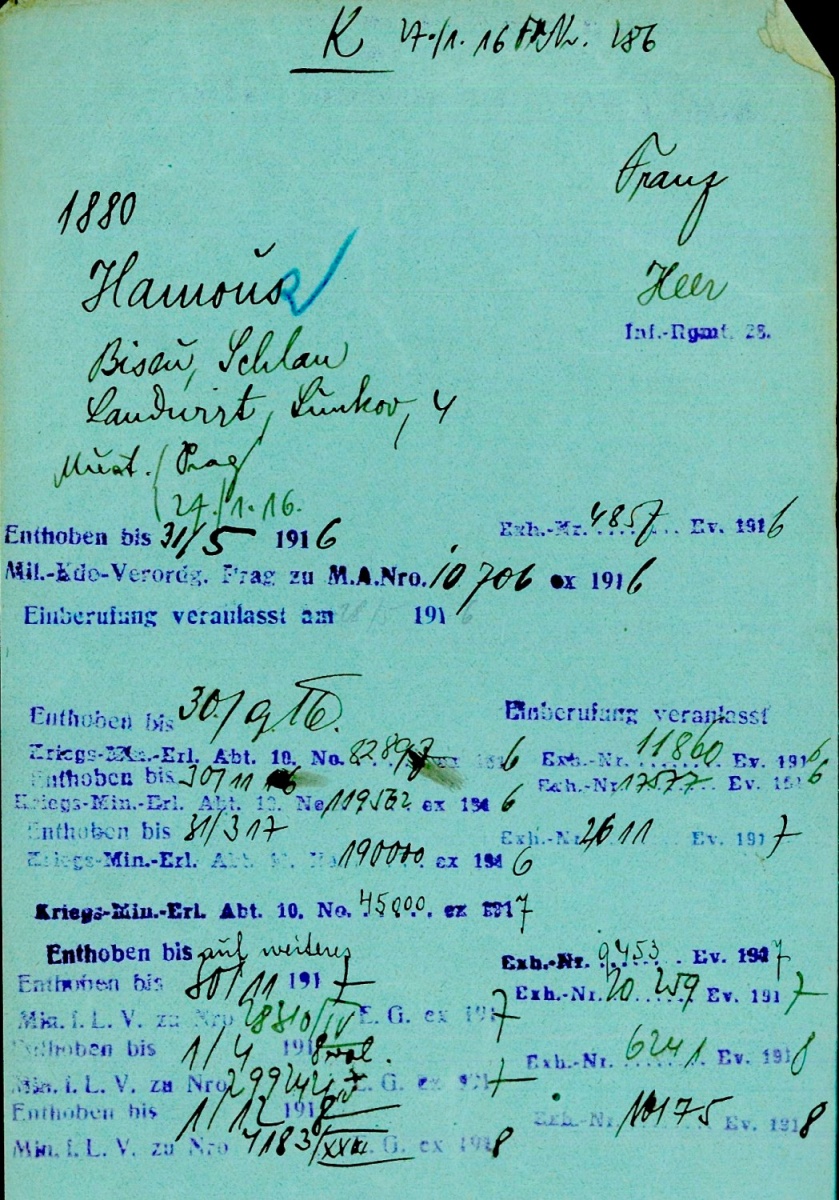 K 27./1. 16 Nr. 286
Franz
1880
Hamouš
Heer
Inf.-Rgmt. 28.
Biseň, Schlan
Landwirt, Lunkov, 4
Must. Prag
24./1. 16.
Enthoben bis 31/5 1916 Exh.-Nr. 4857 Ev. 1916
Mil.-Kdo-Verordg. Prag zu M.A.Nro. 10706 ex 1916
Einberufung veranlasst am 28/5 1916
Enthoben bis 30./9. 16. Einberufung veranlasst
Kriegs-Min.-Erl. Abt. 10. No. 82897 6 Exh.-Nr. 11860 Ev. 1916
Enthoben bis 30/11 16 Exh.-Nr. 17577 Ev. 1916
Kriegs-Min.-Erl. Abt. 10. No 119562 ex 1916
Enthoben bis 31/3 17 Exh.-Nr. 2611 Ev. 1917
Kriegs-Min.-Erl. Abt. No 190000 ex 1916
Kriegs-Min.-Erl. Abt. 10. No. 45000. ex 1917
Enthoben bis auf weiteres Exh.-Nr. 9453 Ev. 1917
Enthoben bis 30/11 1917 Exh.-Nr. 20259 Ev. 1917
Min. f. L. V. zu Nro 28310/IV E. G. ex 1917
Enthoben bis 1/4 1918 Exh.-Nr. 6241 Ev. 1918
Min. f. L. V. zu Nro 299242 E. G. ex 1917
Enthoben bis 1/12 1918 Exh.-Nr. 10175 Ev. 1918
Min. f. L. V. zu Nro 4183/XXII G. ex 1918